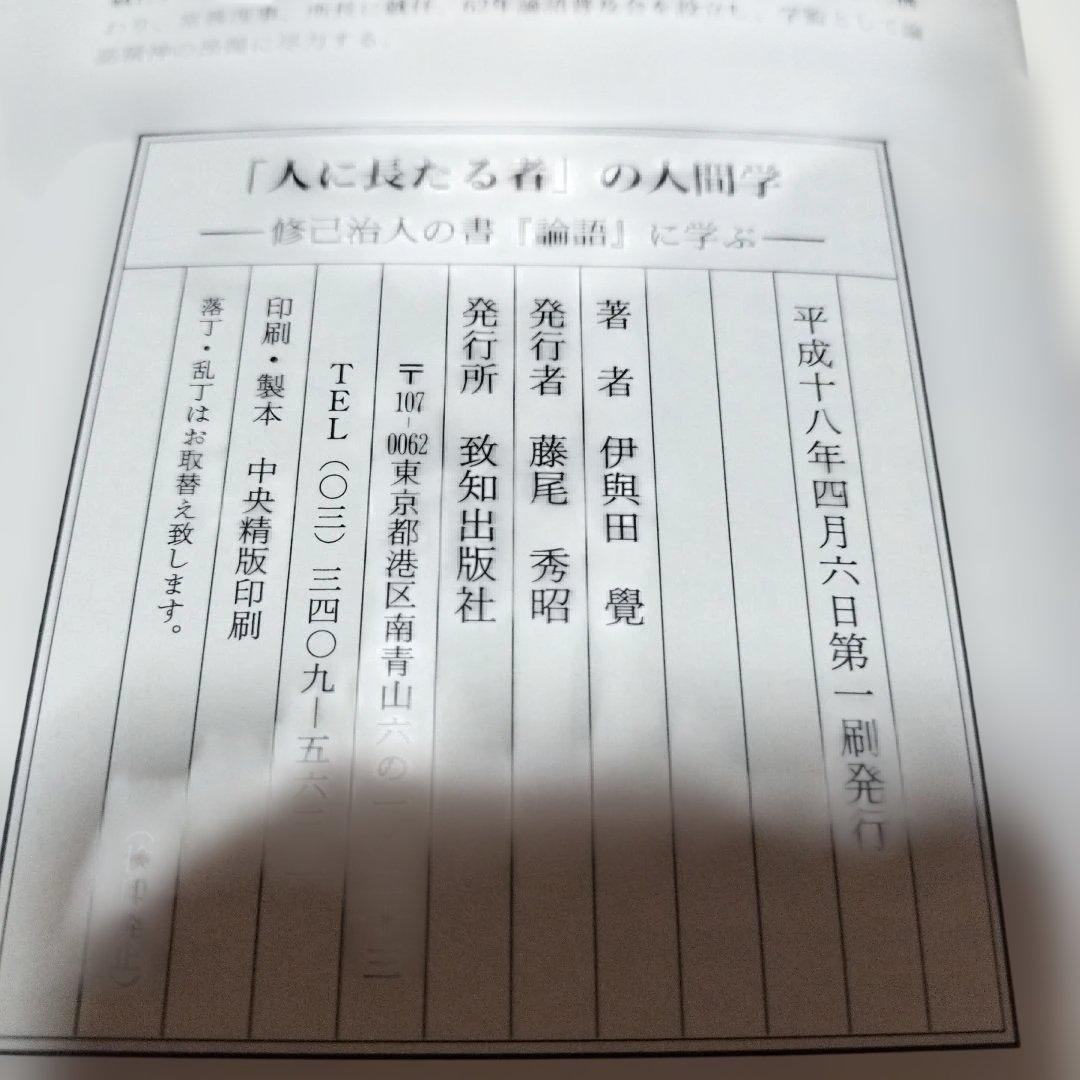 「人に長たる者」の人間学
──修己治人の書『論語』に学ぶ──
平成十八年四月六日第一刷発行
著者 伊與田 覺
発行者 藤尾 秀昭
発行所 致知出版社
〒107-0062東京都港区南青山六の
TEL(〇三)三四〇九―五六
印刷・製本 中央精版印刷
落丁・乱丁はお取替え致します。